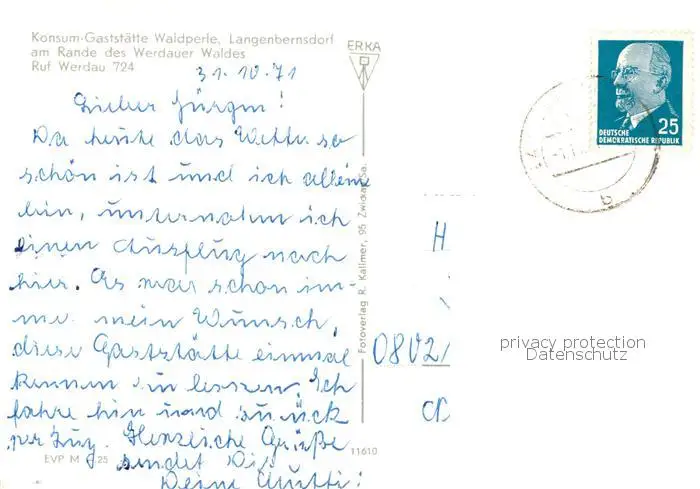 Konsum-Gaststätte Waldperle, Langenbernsdorf
am Rande des Werdauer Waldes
Ruf Werdau 724
31.10.71
Lieber Jürgen!
Da heute das Wetter so
schön ist und ich alleine
bin, unternahm ich
einen Ausflug nach
hier. Es war schon im-
mer mein Wunsch,
diese Gaststätte einmal
kennen zu lernen. Ich
fahre hin und zurück
per Zug. Herzliche Grüße
sendet Dir
Deine Mutti!
EVP M 0,25
11610
ERKA
Fotoverlag R. Kallmer, 95 Zwickau Sa.
25
DEUTSCHE
DEMOKRATISCHE REPUBLIK
b
H
0802
privacy protection
Datenschutz